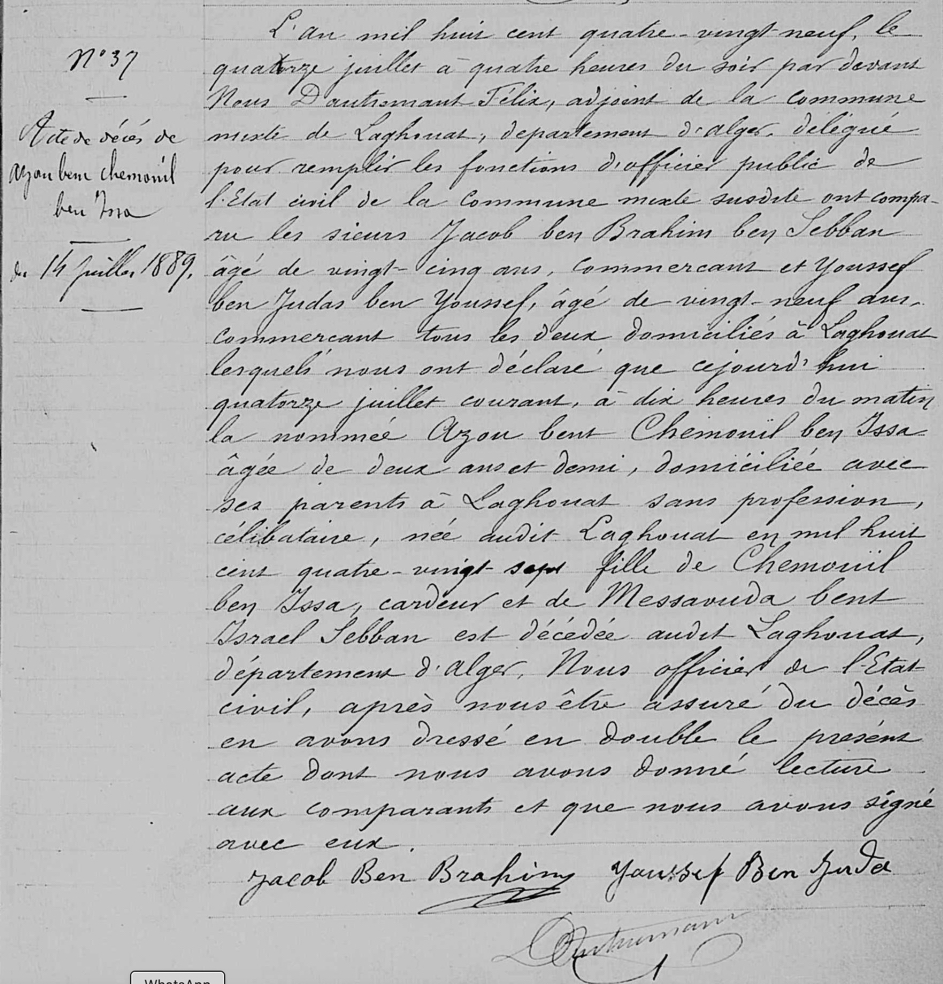 N° 37
Acte de décès de
Azou bent chemouil
ben Issa
du 14 juillet 1889.
L'an mil huit cent quatre-vingt-neuf, le
quatorze juillet à quatre heures du soir par devant
Nous Dautremant Félix, adjoint de la commune
mixte de Laghouat, département d'alger, délégué
pour remplir les fonctions d'officier public de
l'Etat civil de la Commune mixte susdite ont compa-
ru les sieurs Jacob ben Brahim ben Sebban
âgé de vingt-cinq ans, commercant et Youssef
ben Judas ben Youssef, âgé de vingt-neuf ans.
commercant tous les deux domiciliés à Laghouat
lesquels nous ont déclaré que cejourd'hui
quatorze juillet courant, à dix heures du matin
la nommée Azou bent Chemouil ben Issa
âgée de deux ans et demi, domiciliée avec
ses parents à Laghouat sans profession,
célibataire, née audit Laghouat en mil huit
cent quatre-vingt sept fille de Chemouïl
ben Issa, cardeur et de Messaouda bent
Israel Sebban est décédée audit Laghouat,
département d'Alger. Nous officier de l'Etat
civil, après nous être assuré du décès
en avons dressé en double le présent
acte dont nous avons donné lecture
aux comparants et que nous avons signé
avec eux.
Jacob Ben Brahim Youssef Ben Juda
Dautremant
WhatsApp